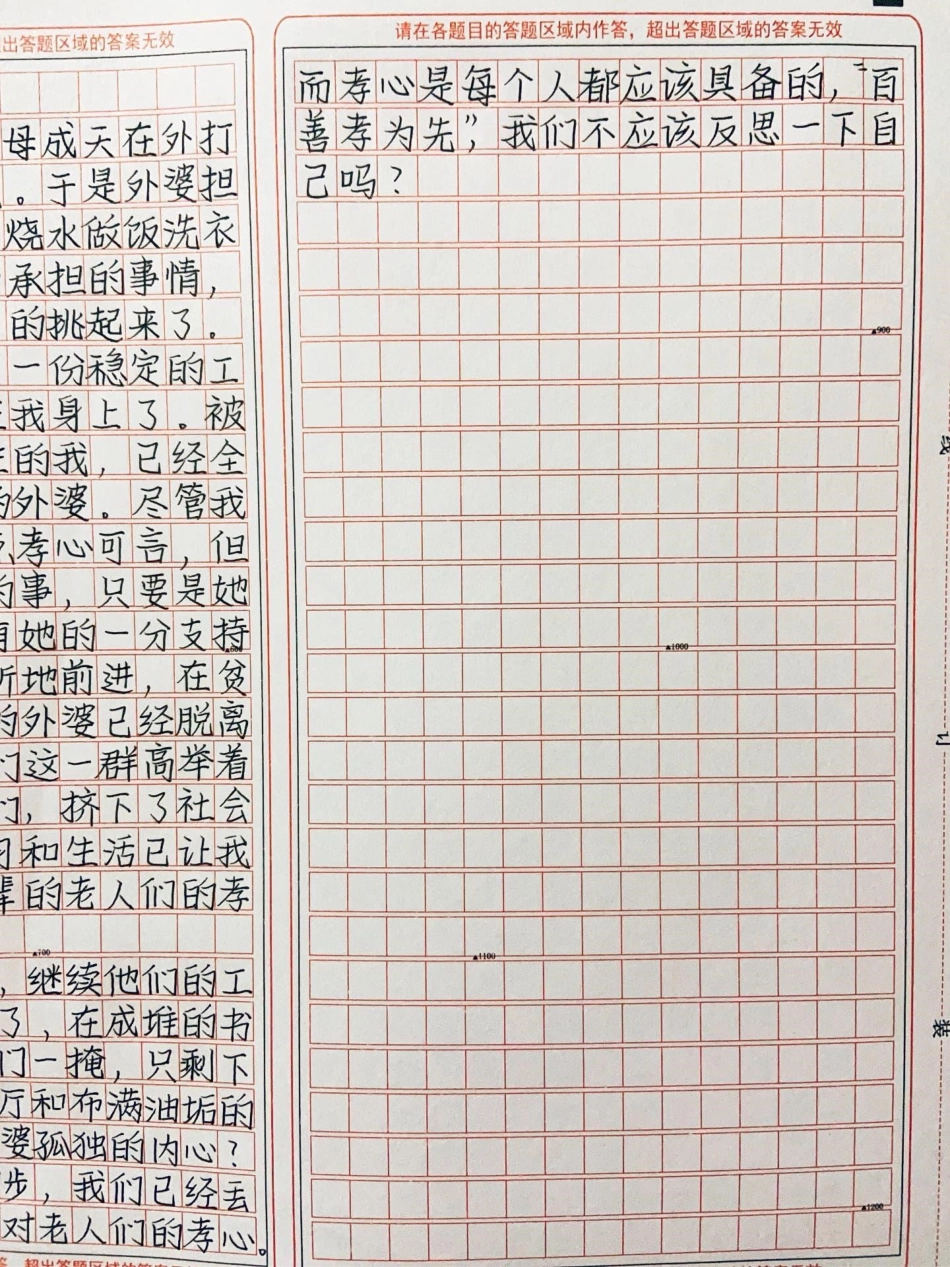 出答题区域的答案无效
母成天在外打
。于是外婆担
烧水做饭洗衣
承担的事情，
的挑起来了。
一份稳定的工
我身上了。被
的我，已经全
的外婆。尽管我
孝心可言，但
的事，只要是她
有她的一分支持
▲600
所地前进，在贫
的外婆已经脱离
们这一群高举着
们，挤下了社会
习和生活已让我
辈的老人们的孝
▲700
，继续他们的工
了，在成堆的书
门一掩，只剩下
厅和布满油垢的
婆孤独的内心？
步，我们已经丢
对老人们的孝心。
答，超出答题区域的答案无效
请在各题目的答题区域内作答，超出答题区域的答案无效
而孝心是每个人都应该具备的，“百
善孝为先”，我们不应该反思一下自
己吗？
▲900
▲1000
▲1100
▲1200
线
订
装